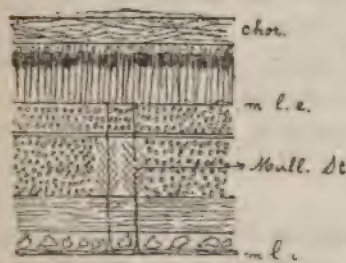 chor.
m l. e.
Mull. St
m l. i